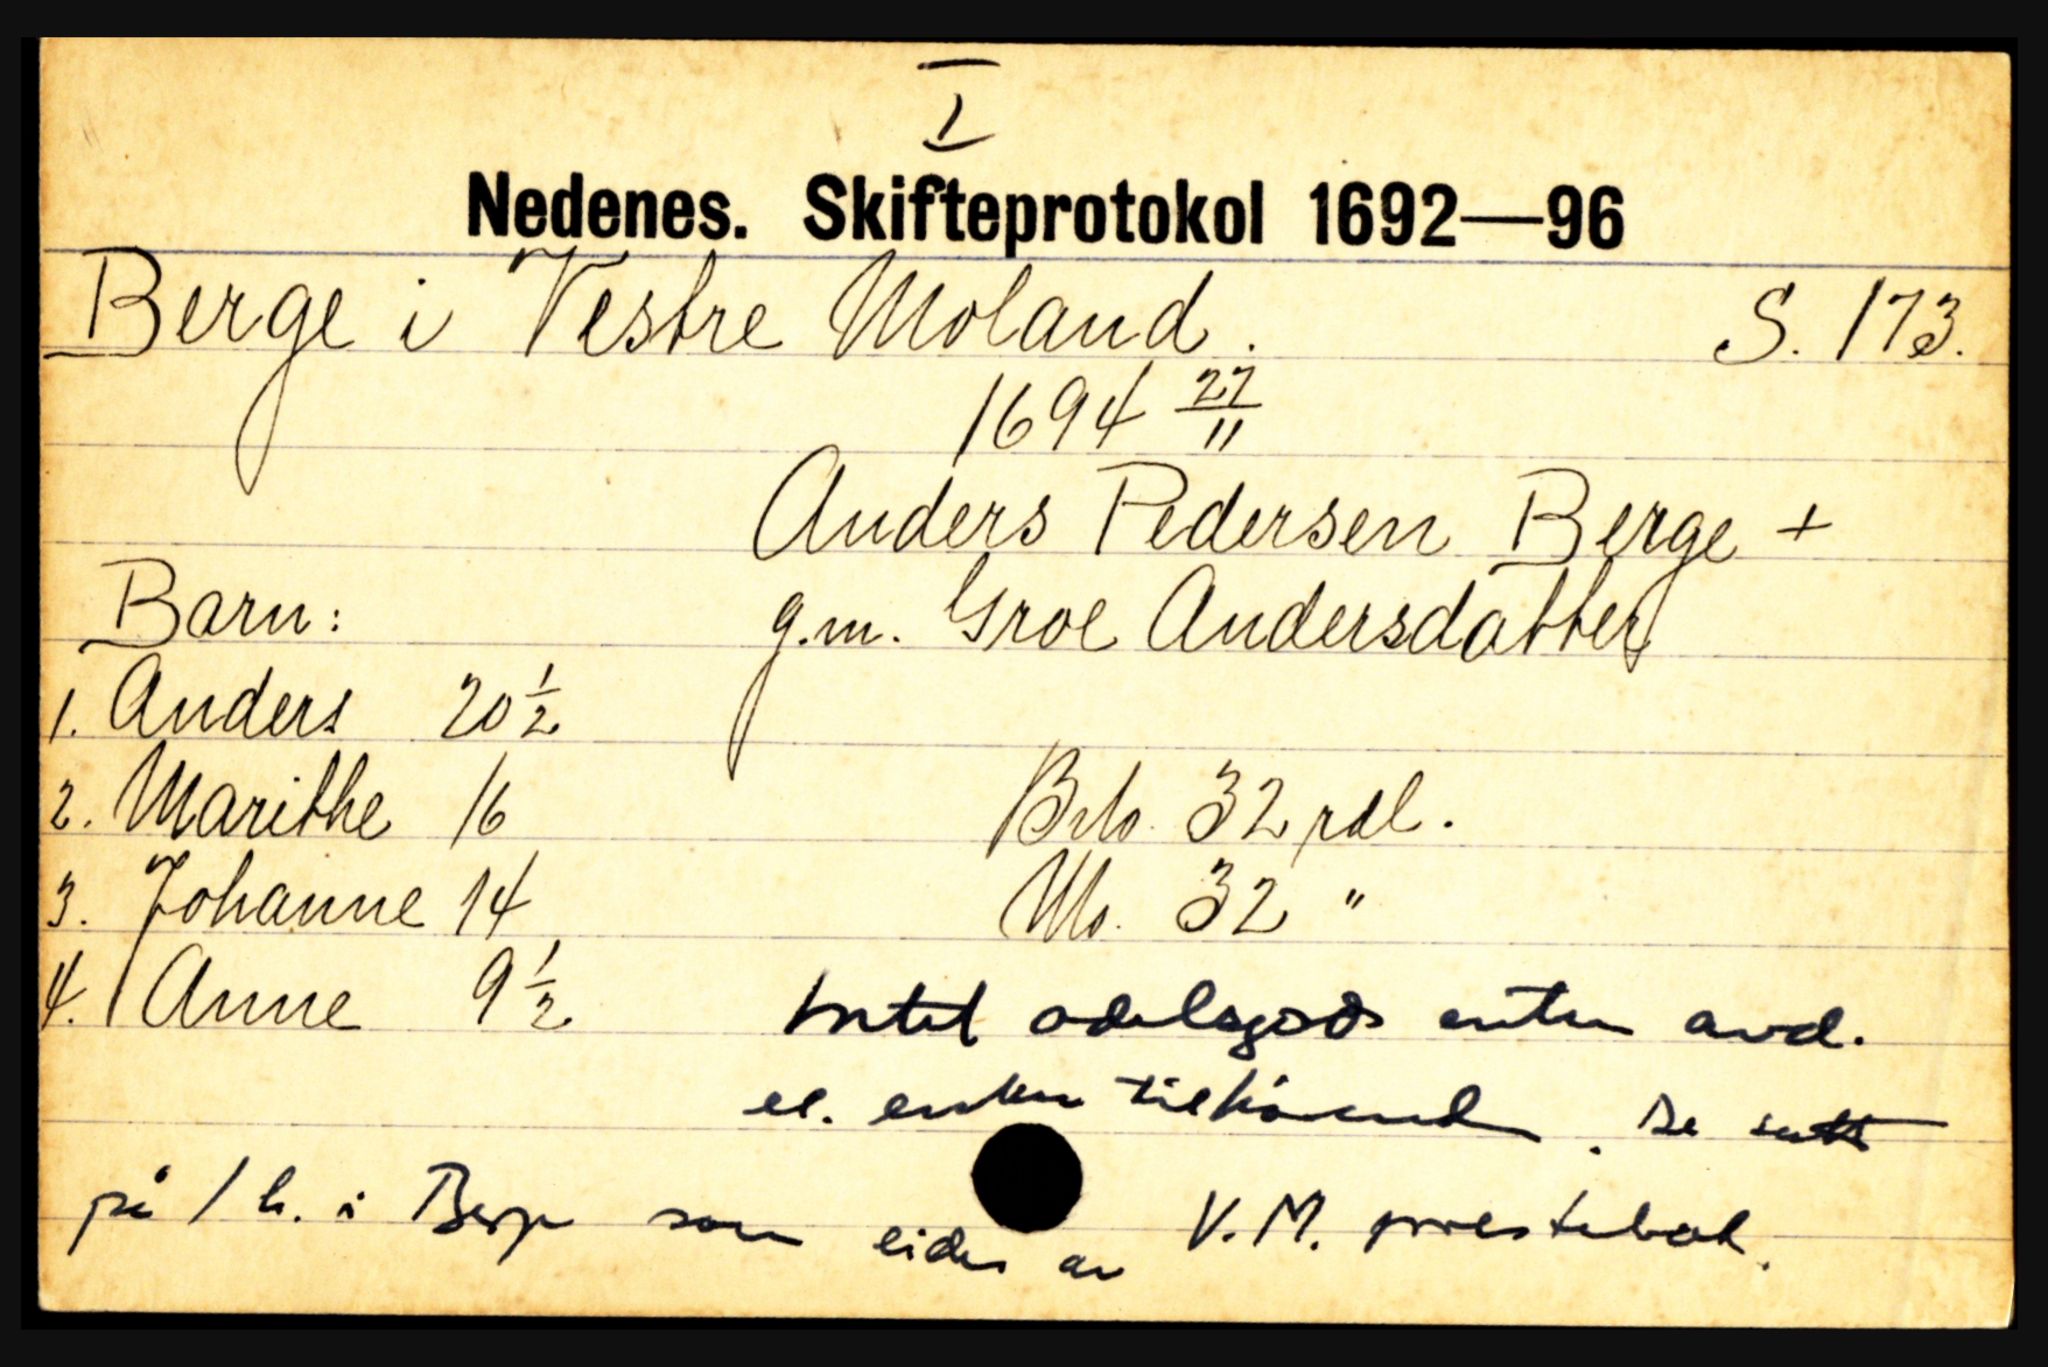 I
Nedenes. Skifteprotokol 1692—96
Berge i Vestre Moland. S. 173.
1694 27/11
Anders Pedersen Berge +
Barn: g.m. Groe Andersdatter
1. Anders 20 1/2
2. Marithe 16 Brto. 32 rdl.
3. Johanne 14 Nto. 32 "
4. Anne 9 1/2 Intet odelsgods enten avd.
el. enken tilhørend. De satt
på 1 h. i Berge som eides av V.M. prestebol.